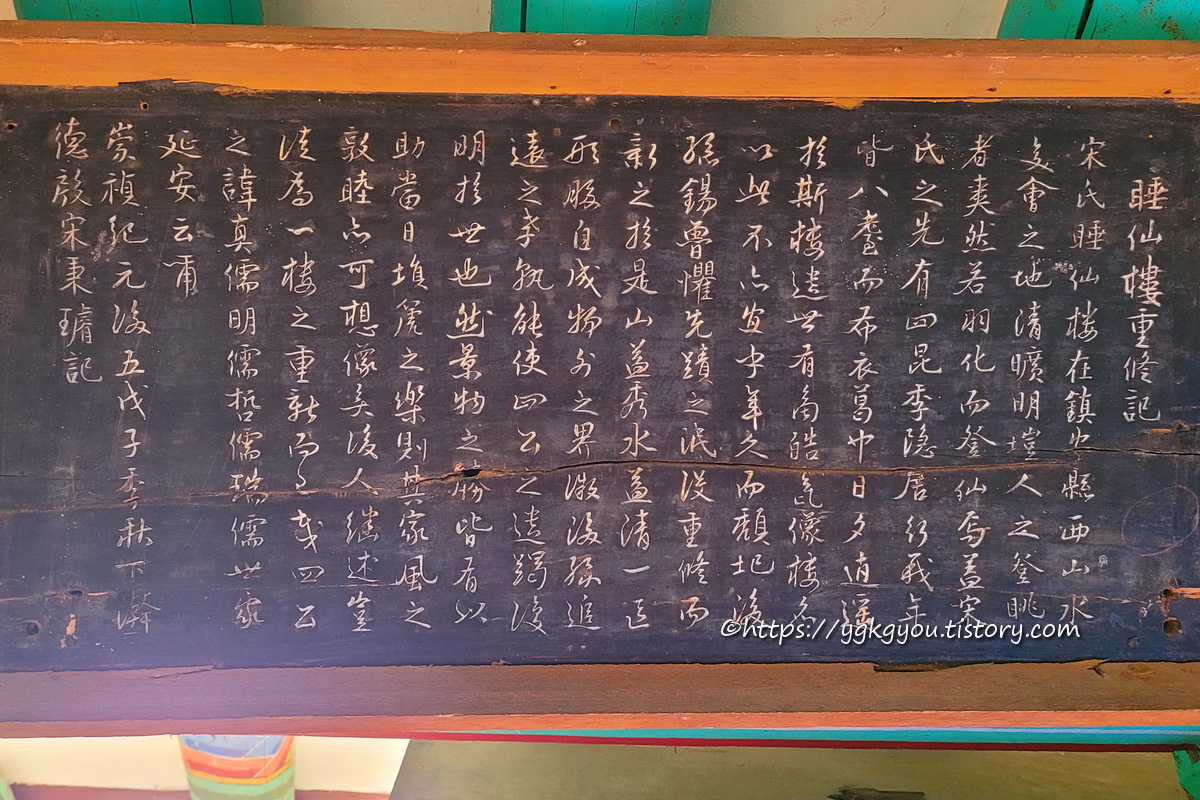 睡仙樓重修記
宋氏睡仙楼在鎮安縣西山水
交會之地清曠明塏人之登眺
者爽然若羽化而登仙焉盖宋
氏之先有四昆季隐居行義年
皆八耋而布衣葛巾日夕逍遥
於斯楼遗世有商皓氣像楼名
以此不亦宜乎年久而頹圮後
孫錫曾懼先蹟之泯没重修而
新之於是山益秀水益清一區
形勝自成物外之界微後孫追
遠之孝孰能使四公之遗躅復
明於世也然景物之勝皆有以
助當日塤篪之樂則其家風之
敦睦亦可想像矣後人繼述豈
徒為一楼之重新而已哉四公
之諱真儒明儒哲儒瑞儒世家
延安云爾
崇禎紀元後五戊子季秋下澣
德殷宋秉璿記
©https://ygkgyou.tistory.com